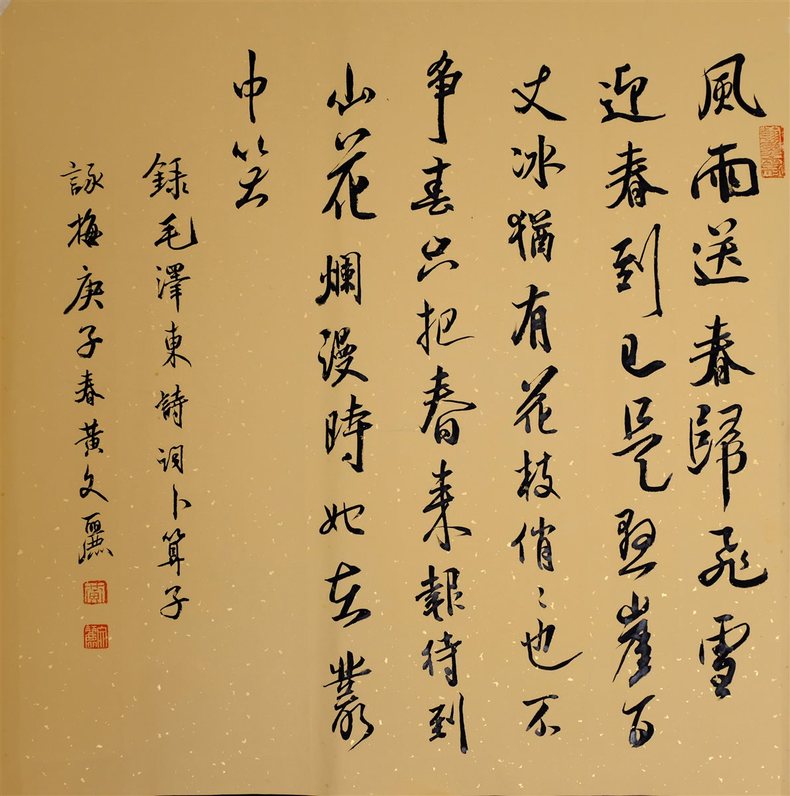 風雨送春歸飛雪
迎春到已是懸崖百
丈冰猶有花枝俏〻也不
争春只把春来報待到
山花爛漫時她在叢
中笑
錄毛澤東詩词卜算子
詠梅庚子春黃文麗